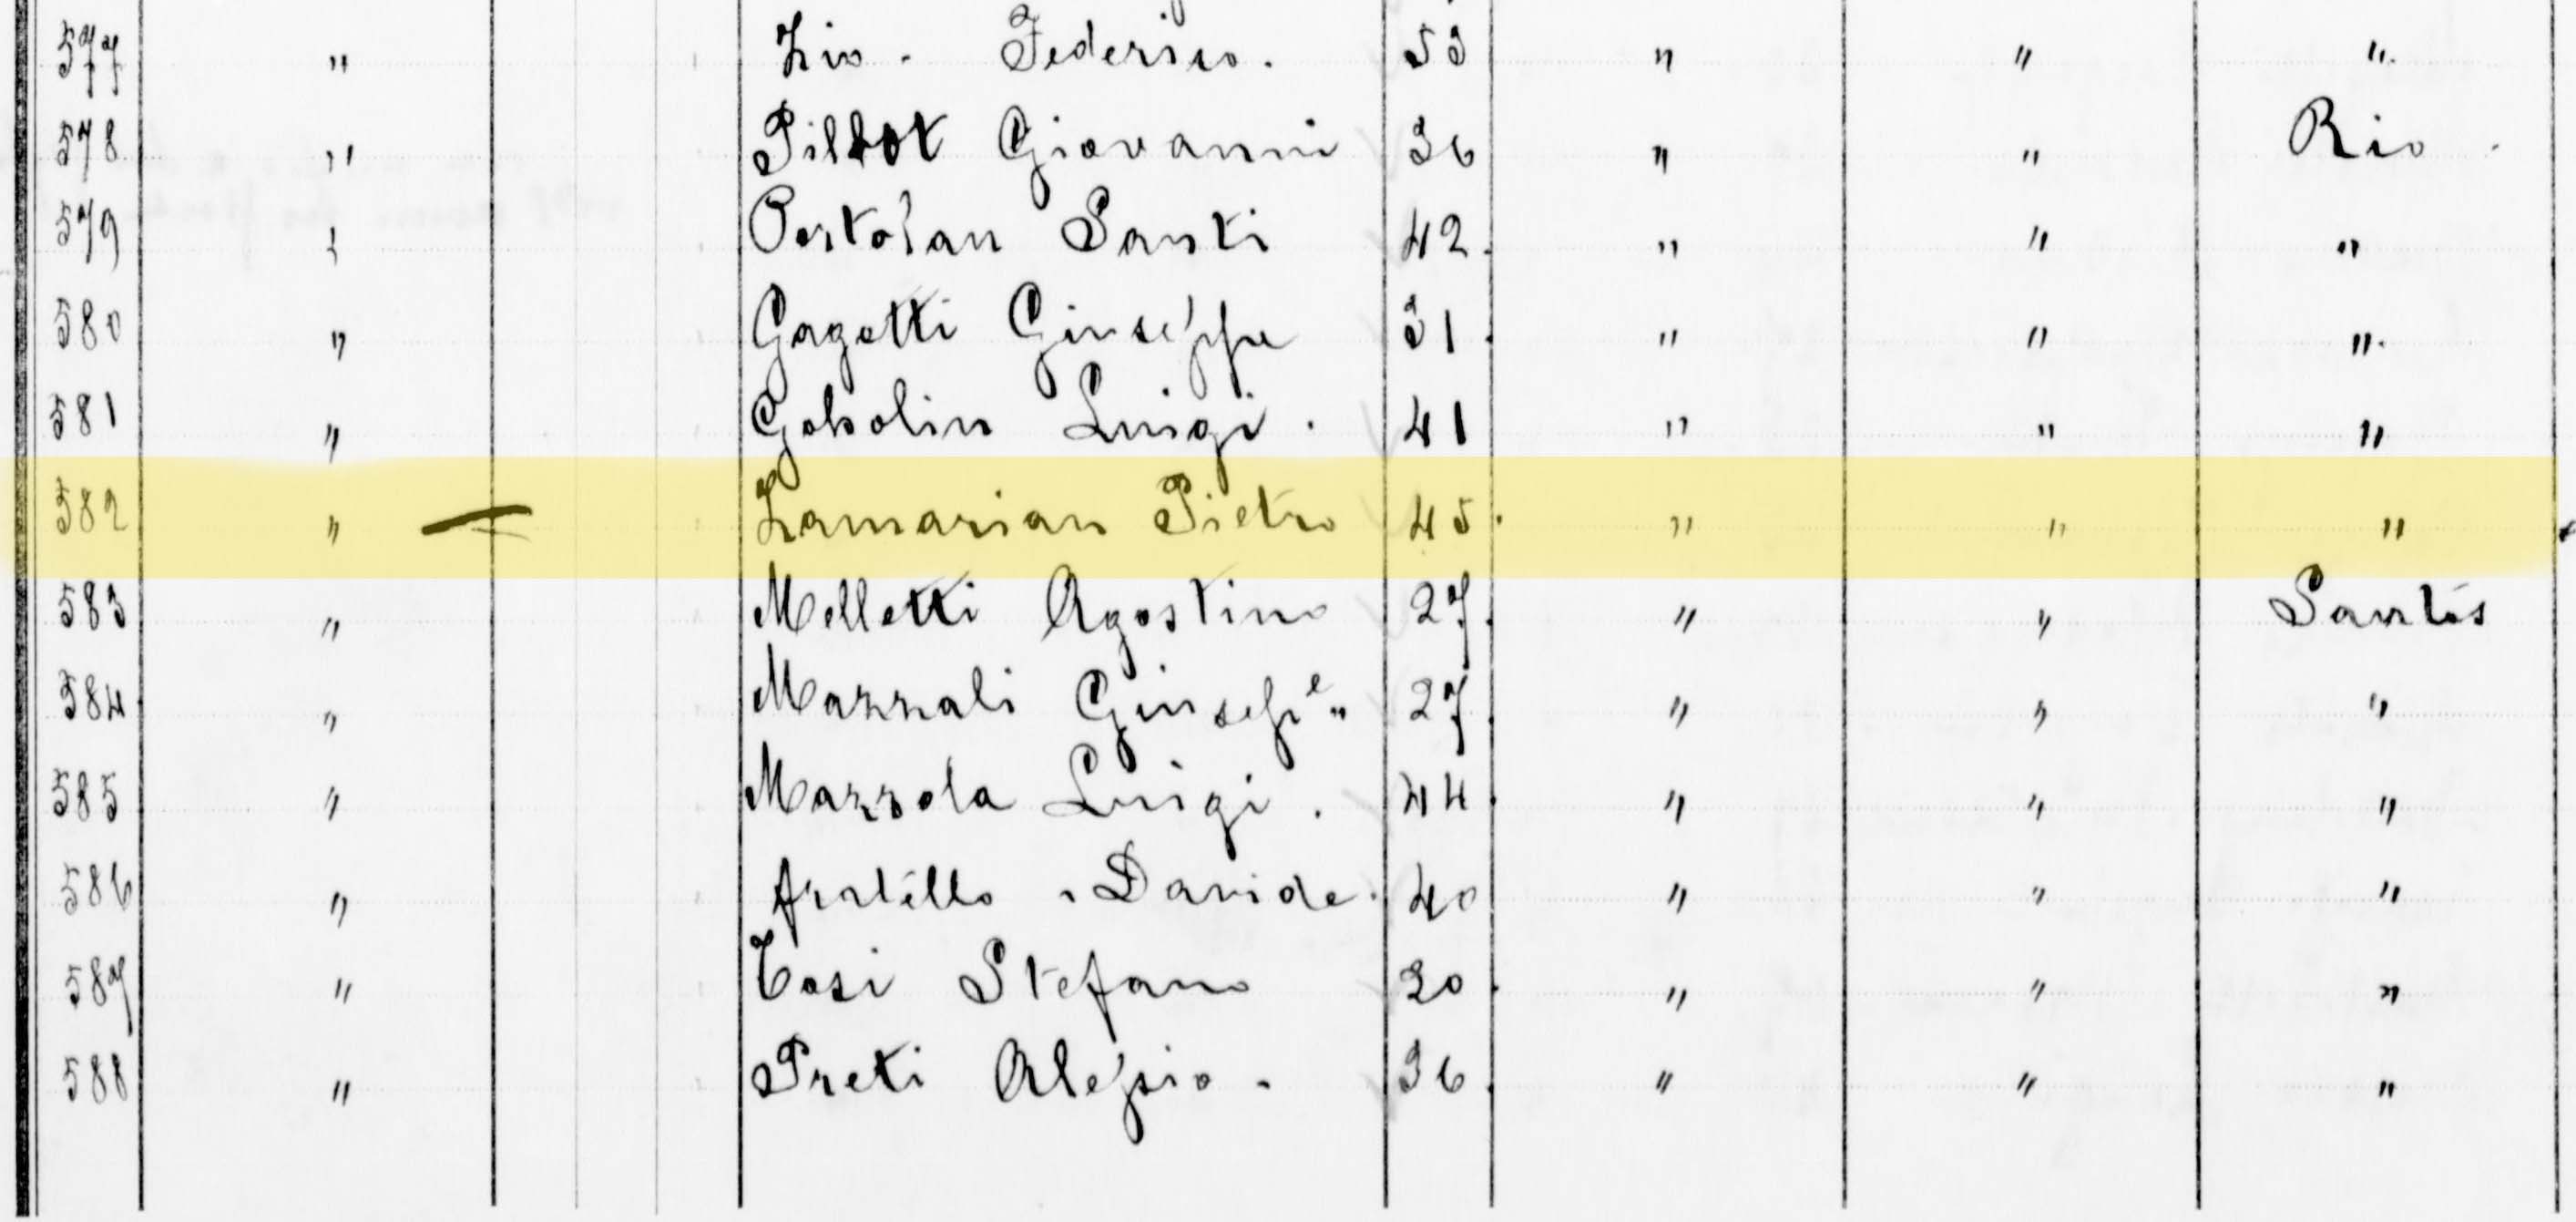 577 " Zio - Federico. 53 " " "
578 " Pillot Giovanni 36 " " Rio
579 " Portolan Santi 42. " " "
580 " Gagetti Giuseppe 31. " " "
581 " Gobolin Luigi. 41 " " "
582 " Zamarian Pietro 45. " " "
583 " Melletti Agostino 27. " " Santos
584 " Mazzali Giusepe " 27. " " "
585 " Mazzola Luigi. 44. " " "
586 " fratello " Davide. 40 " " "
587 " Tosi Stefano 20. " " "
588 " Preti Alessio - 36. " " "